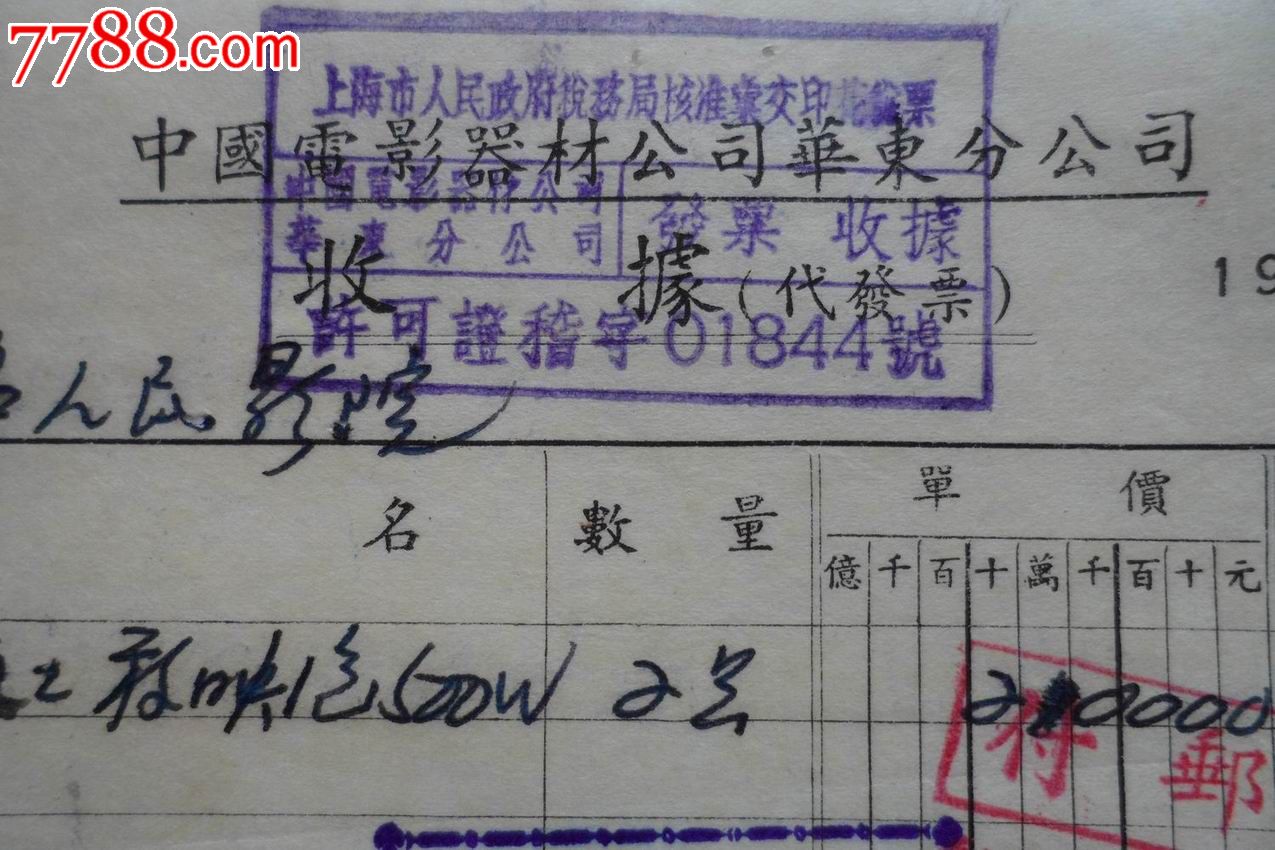 7788.com
上海市人民政府稅務局核准彙交印花發票
中國電影器材公司華東分公司
中國電影器材公司
華東分公司
發票 收據
收據(代發票)
19
許可證稽字01844號
人民影院
名 數量 單價
億千百十萬千百十元
放映 500W 2 2 0000
郵